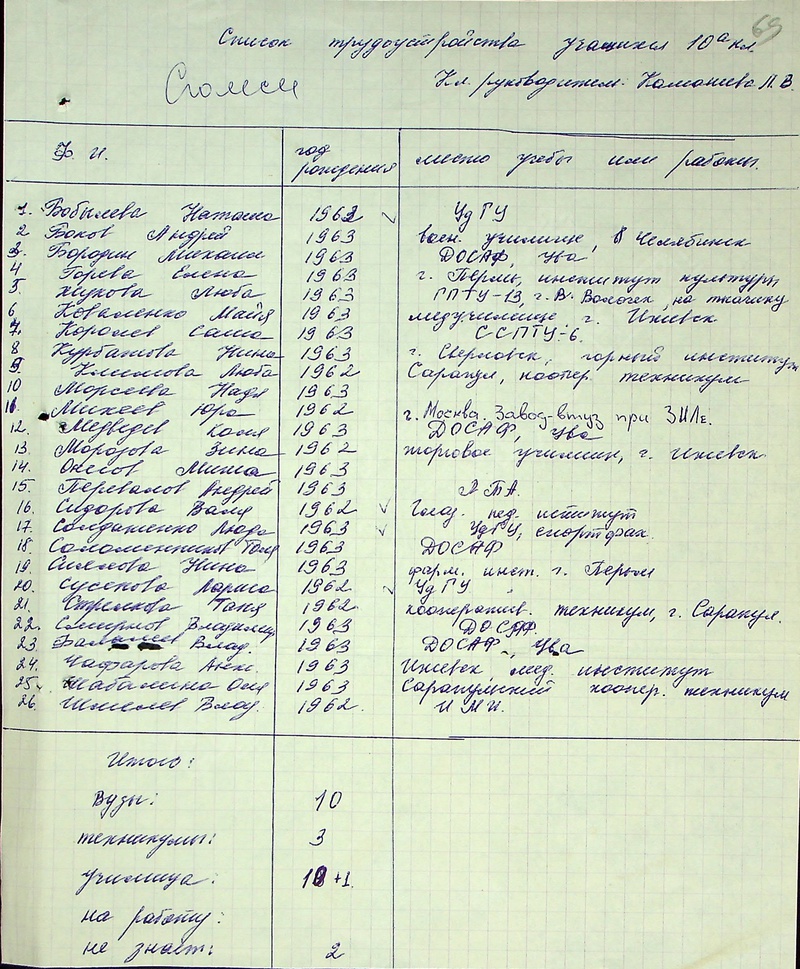 69
Список трудоустройства учащихся 10а кл.
Кл. руководитель: Камашева Л. В.
Ф. И. год рождения место учебы или работы.
1. Бобылева Наташа 1963 УдГУ
2 Боков Андрей 1963 воен. училище, в Челябинск
3. Бородин Михаил 1963 ДОСАФ, Ува
4 Горева Елена 1963 г. Пермь, институт культуры
5 Жукова Люба 1963 ГПТУ-13, г. В. Волочек, на ткачиху
6 Коваленко Майя 1963 медучилище г. Ижевск
7. Королев Саша 1963 ССПТУ-6.
8 Курбатова Нина 1963 г. Сверловск, горный институт
9 Климова Люба 1962 Сарапул, коопер. техникум
10 Морсеева Надя 1963
11. Михеев Юра 1962 г. Москва. Завод-втуз при ЗИЛе.
12. Медведев Коля 1963 ДОСАФ, Ува
13. Морозова Зина 1962 торговое училище, г. Ижевск.
14. Миша 1963
15. Перевалов Андрей 1963
16. Сидорова Валя 1962 Глаз. пед. иститут
17. Солдатенко Люда 1963 УдГУ, спортфак.
18. Соломенников Толя 1963 ДОСАФ
19. Нина 1963 фарм. инст. г. Перьм
20. Сусекова Лариса 1962 УдГУ
21. Стрелкова Таня 1963 кооператив. техникум, г. Сарапул.
22. Смирнов Владимир 1963 ДОСАФ
23 Влад. 1963 ДОСАФ, Ува
24. Чафарова 1963 Ижевск, мед. институт
25. Шабалина Оля 1963 Сарапульский коопер. техникум
26. Шмелев Влад. 1962. И М И.
Итого:
Вузы: 10
техникумы: 3
училища: +1.
на работу:
не знает: 2